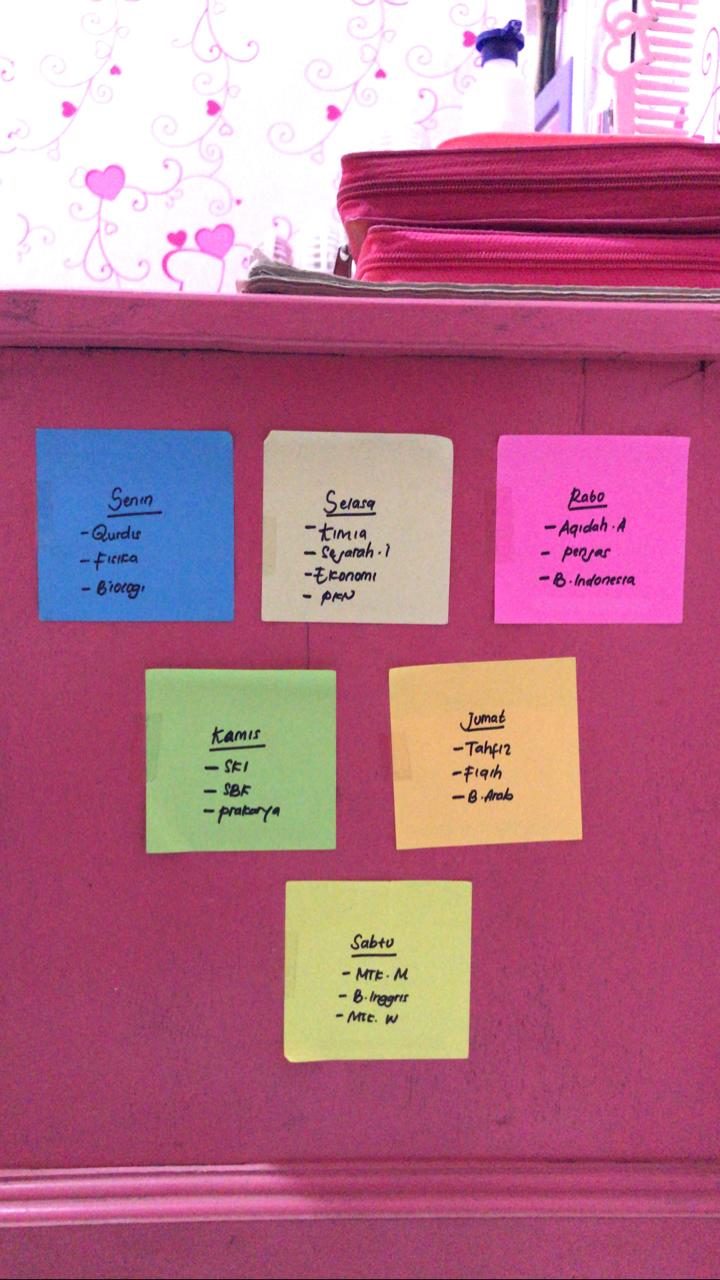 Senin
- Qurdis
- Fisika
- Biologi
Selasa
- Kimia
- Sejarah.i
- Ekonomi
- PKN
Rabo
- Aqidah.A
- penjas
- B.Indonesia
Kamis
- SKI
- SBK
- prakarya
Jumat
- Tahfiz
- Fiqih
- B.Arab
Sabtu
- MTK.M
- B.Inggris
- MTK.W